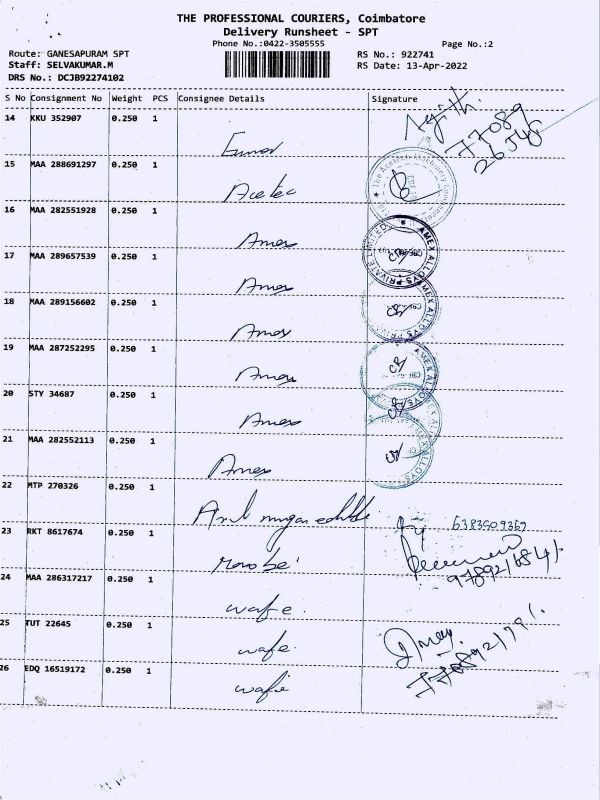 THE PROFESSIONAL COURIERS, Coimbatore
Delivery Runsheet - SPT
Phone No.:0422-3505555 Page No.:2
Route: GANESAPURAM SPT RS No.: 922741
Staff: SELVAKUMAR.M RS Date: 13-Apr-2022
DRS No.: DCJB92274102
S No Consignment No Weight PCS Consignee Details Signature
14 KKU 352907 0.250 1
77089
26548
15 MAA 288691297 0.250 1
16 MAA 282551928 0.250 1
Amex
17 MAA 289657539 0.250 1
Amex
18 MAA 289156602 0.250 1
Amex
19 MAA 287252295 0.250 1
Amex
20 STY 34687 0.250 1
Amex
21 MAA 282552113 0.250 1
Amex
AMEX ALLOYS PRIVATE LIMITED
22 MTP 270326 0.250 1
6383509369
23 RKT 8617674 0.250 1
24 MAA 286317217 0.250 1
wafe
25 TUT 22645 0.250 1
wafe.
26 EDQ 16519172 0.250 1
wafe